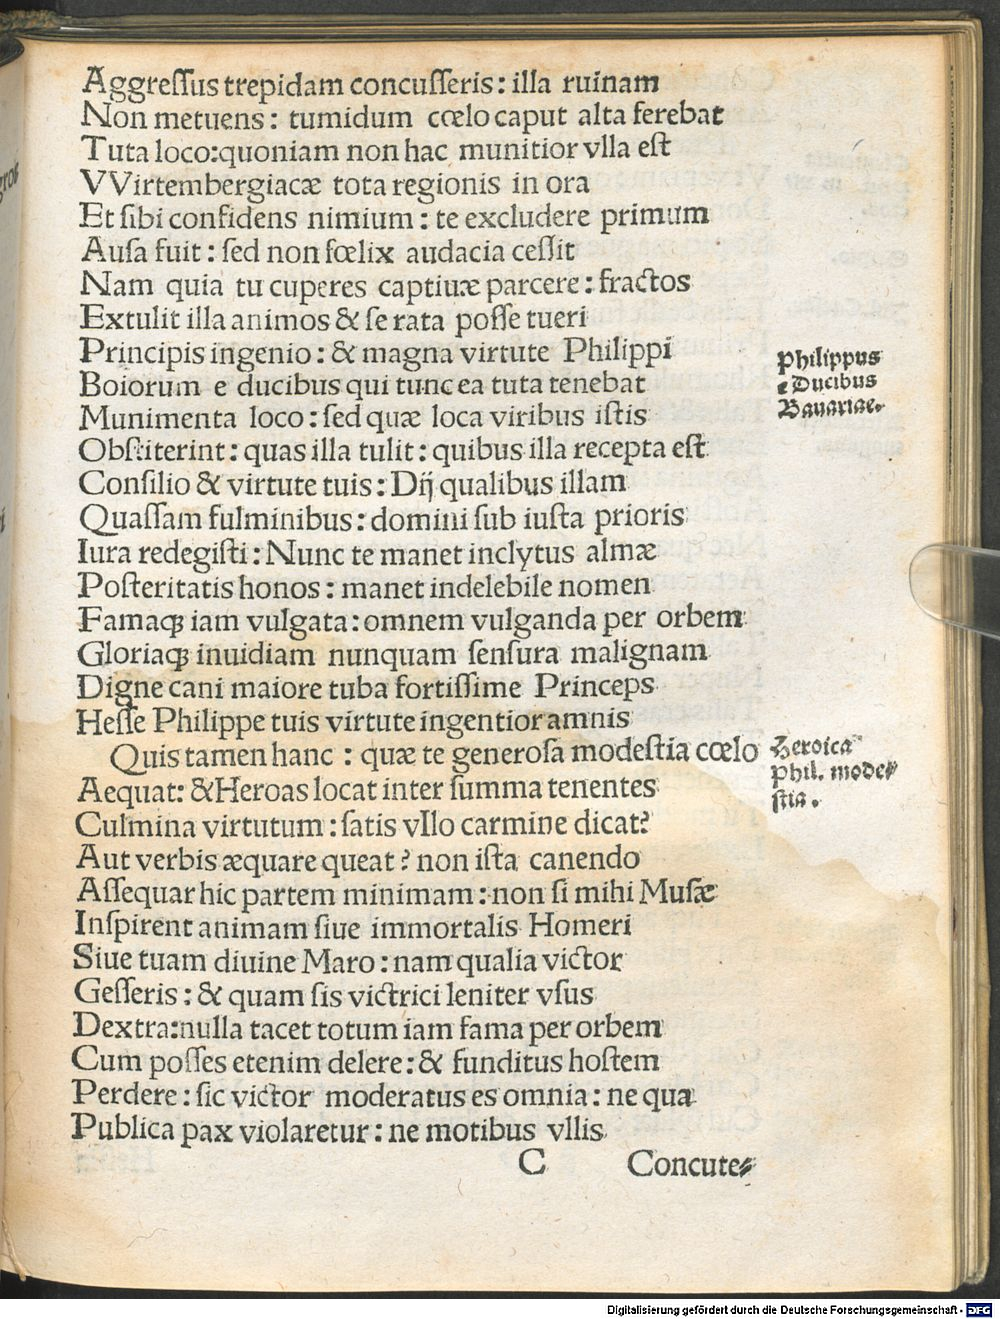 Aggreſſus trepidam concuſſeris: illa ruinam
Non metuens: tumidum cœlo caput alta ferebat
Tuta loco: quoniam non hac munitior vlla eſt
VVirtembergiacæ tota regionis in ora
Et ſibi confidens nimium: te excludere primum
Auſa fuit: ſed non fœlix audacia ceſſit
Nam quia tu cuperes captiuæ parcere: fractos
Extulit illa animos & ſe rata poſſe tueri
Principis ingenio: & magna virtute Philippi
Boiorum e ducibus qui tunc ea tuta tenebat
Philippus
e Ducibus
Bauariae.
Munimenta loco: ſed quæ loca viribus iſtis
Obſtiterint: quas illa tulit: quibus illa recepta eſt
Conſilio & virtute tuis: Dij qualibus illam
Quaſſam fulminibus: domini ſub iuſta prioris
Iura redegiſti: Nunc te manet inclytus almæ
Poſteritatis honos: manet indelebile nomen
Famaqꝫ iam vulgata: omnem vulganda per orbem
Gloriaqꝫ inuidiam nunquam ſenſura malignam
Digne cani maiore tuba fortiſſime Princeps
Heſſe Philippe tuis virtute ingentior amnis
Quis tamen hanc: quæ te generoſa modeſtia cœlo
Heroica
Phil. mode⸗
ſtia.
Aequat: & Heroas locat inter ſumma tenentes
Culmina virtutum: ſatis vllo carmine dicat?
Aut verbis æquare queat? non iſta canendo
Aſſequar hic partem minimam: non ſi mihi Muſæ
Inſpirent animam ſiue immortalis Homeri
Siue tuam diuine Maro: nam qualia victor
Geſſeris: & quam ſis victrici leniter vſus
Dextra: nulla tacet totum iam fama per orbem
Cum poſſes etenim delere: & funditus hoſtem
Perdere: ſic victor moderatus es omnia: ne qua
Publica pax violaretur: ne motibus vllis
C Concute⸗
Digitalisierung gefördert durch die Deutsche Forschungsgemeinschaft - DFG